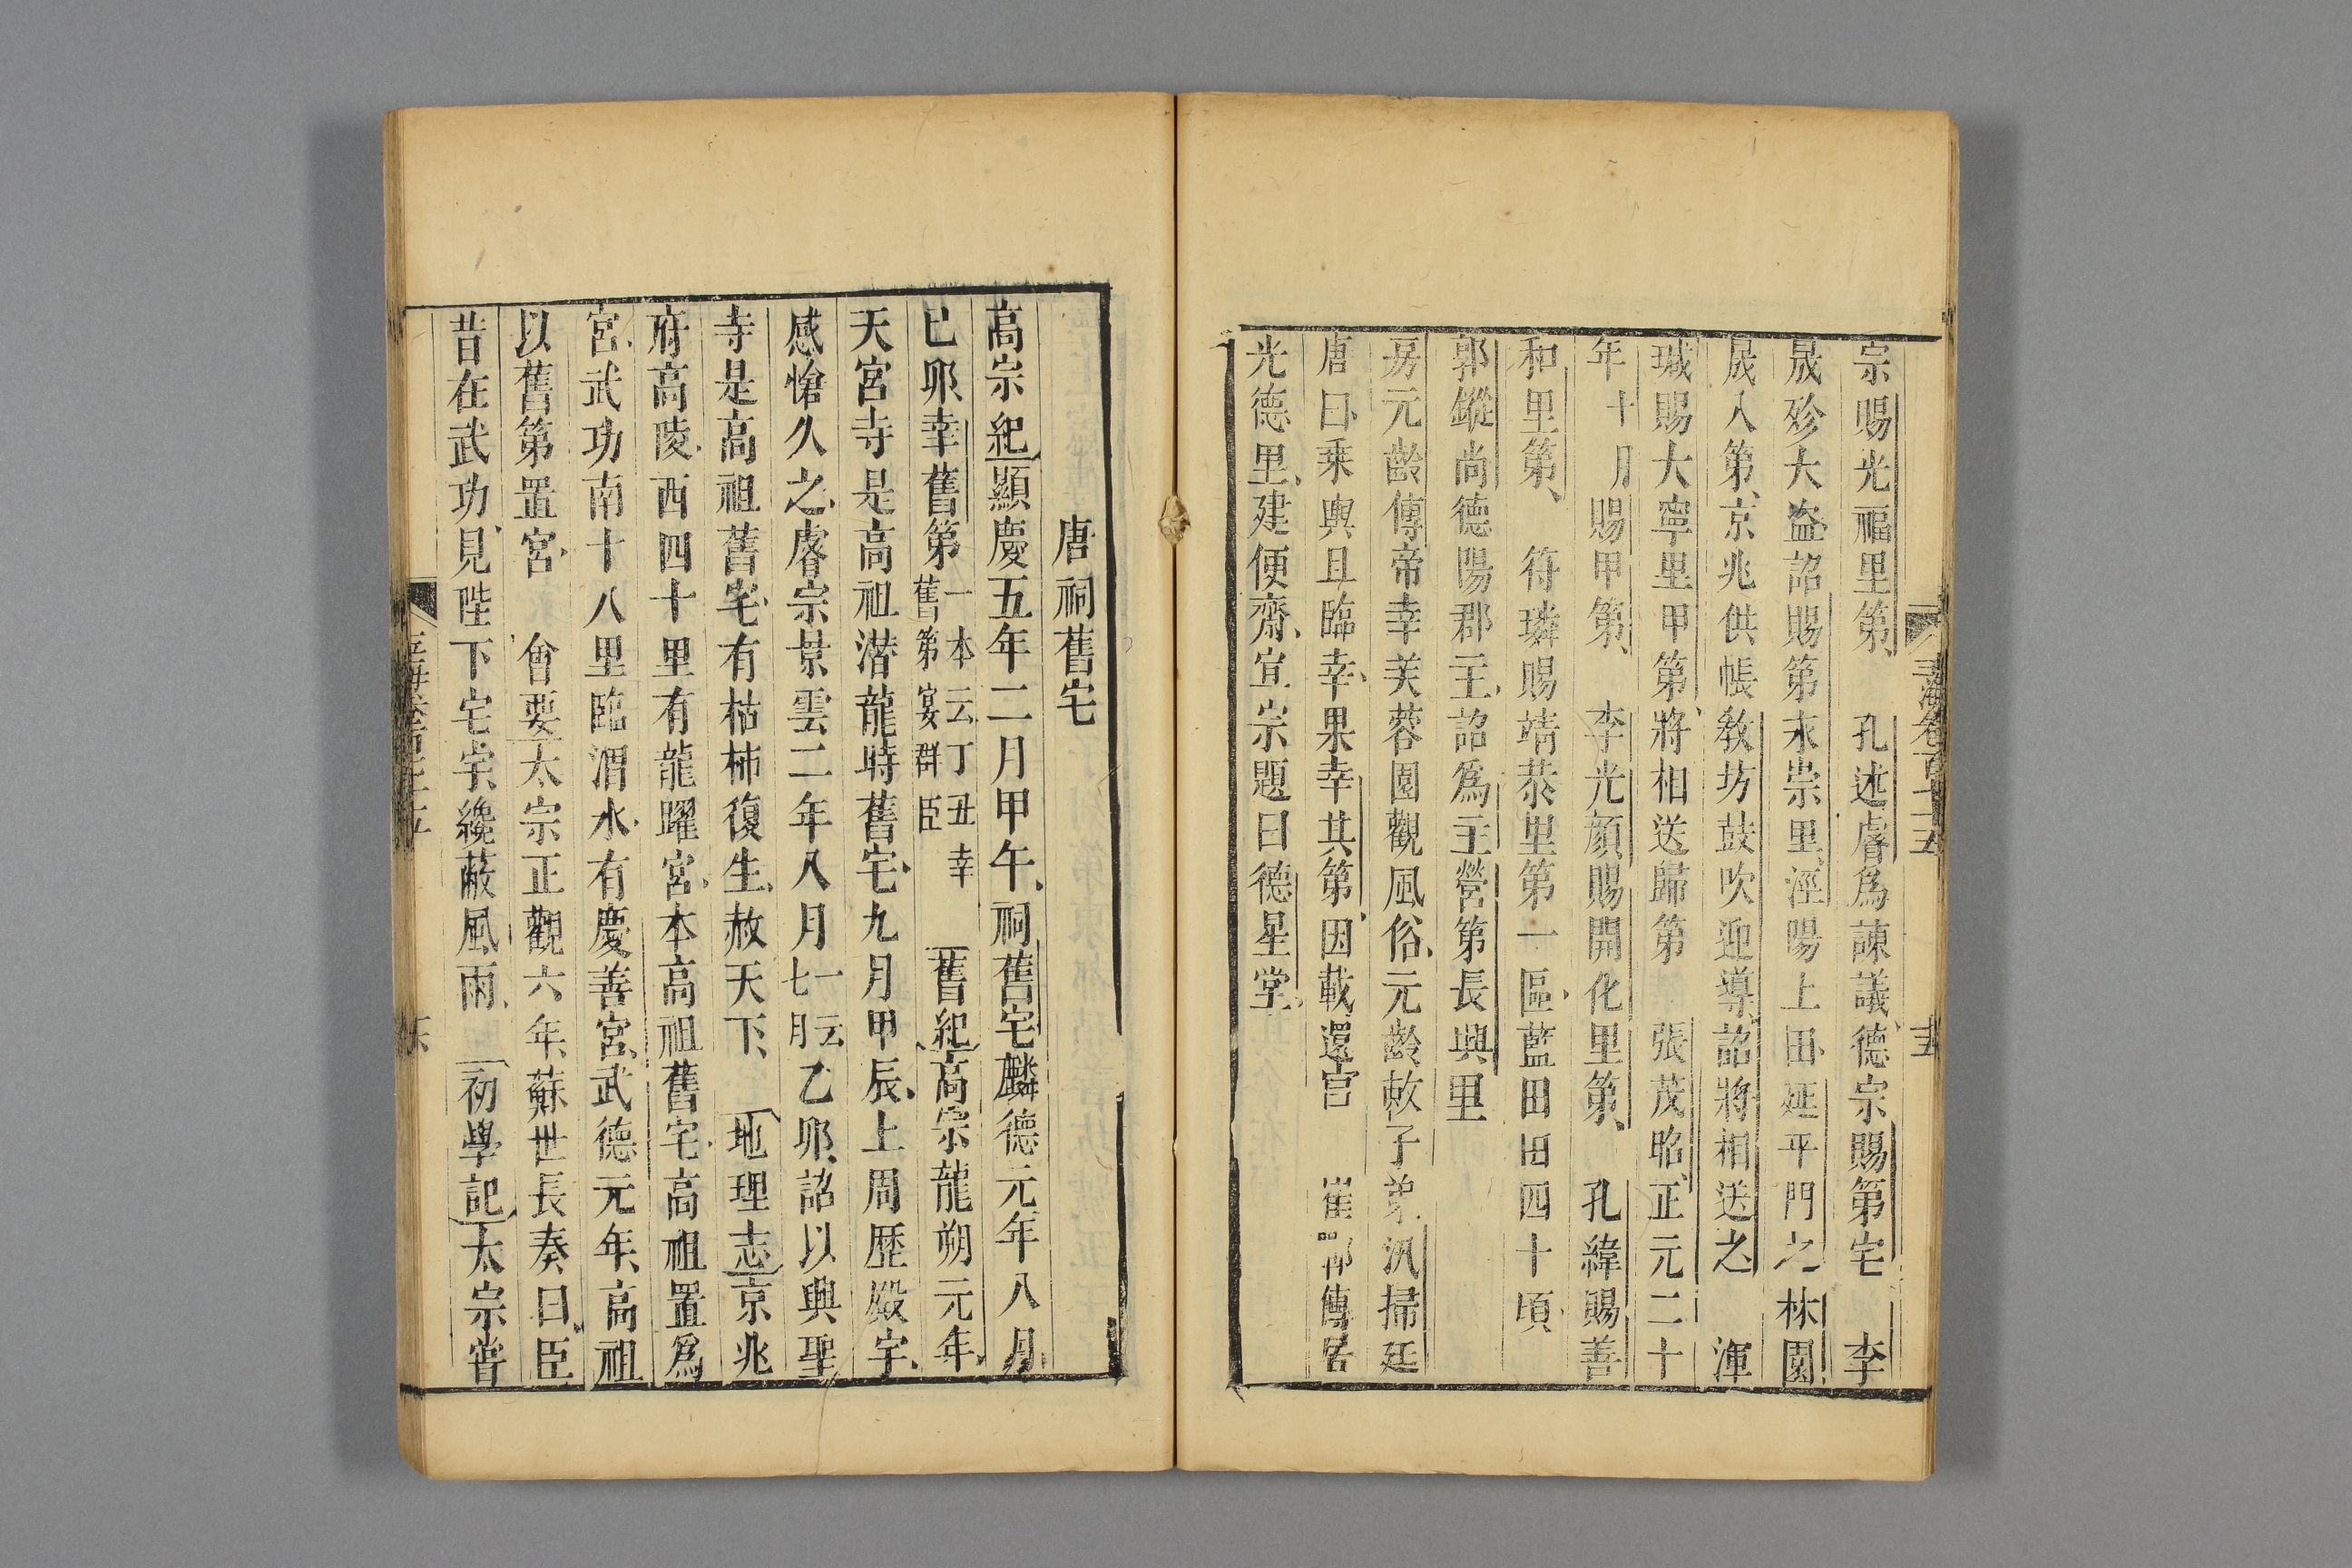 宗賜光福里第孔述睿爲諫議德宗賜第宅李
晟殄大盜詔賜第永崇里涇陽上田延平門之林園
晟入第京兆供帳敎坊鼓吹迎導詔將相送之渾
瑊賜大寧里甲第將相送歸第張茂昭正元二十
年十月賜甲第李光顔賜開化里第孔緯賜善
和里第符璘賜靖恭里第一區藍田田四十頃
郭鏦尚德陽郡主詔爲主營第長興里
房元齡傳帝幸芙蓉園觀風俗元齡敕子弟汛掃廷
唐曰乗輿且臨幸果幸其第因載還宫崔郸傳居
光德里建便齋宣宗題曰德星堂
唐祠舊宅
高宗紀顯慶五年二月甲午祠舊宅麟德元年八月
已夘幸舊第一本云丁丑幸舊第宴群臣舊紀高宗龍朔元年
天宮寺是高祖潜龍時舊宅九月甲辰上周歴殿宇
感愴久之睿宗景雲二年八月一云七月乙夘詔以興聖
寺是高祖舊宅有枯柿復生赦天下地理志京兆
府高陵西四十里有龍躍宮本高祖舊宅高祖置爲
宮武功南十八里臨渭水有慶善宮武德元年高祖
以舊第置宮會要太宗正觀六年蘇世長奏曰臣
昔在武功見陛下宅宇纔蔽風雨初學記太宗嘗